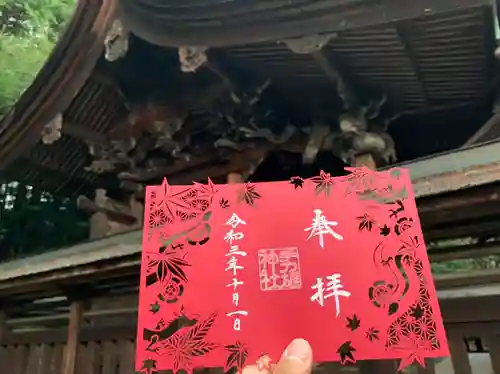 奉拝
神社
令和三年十月一日